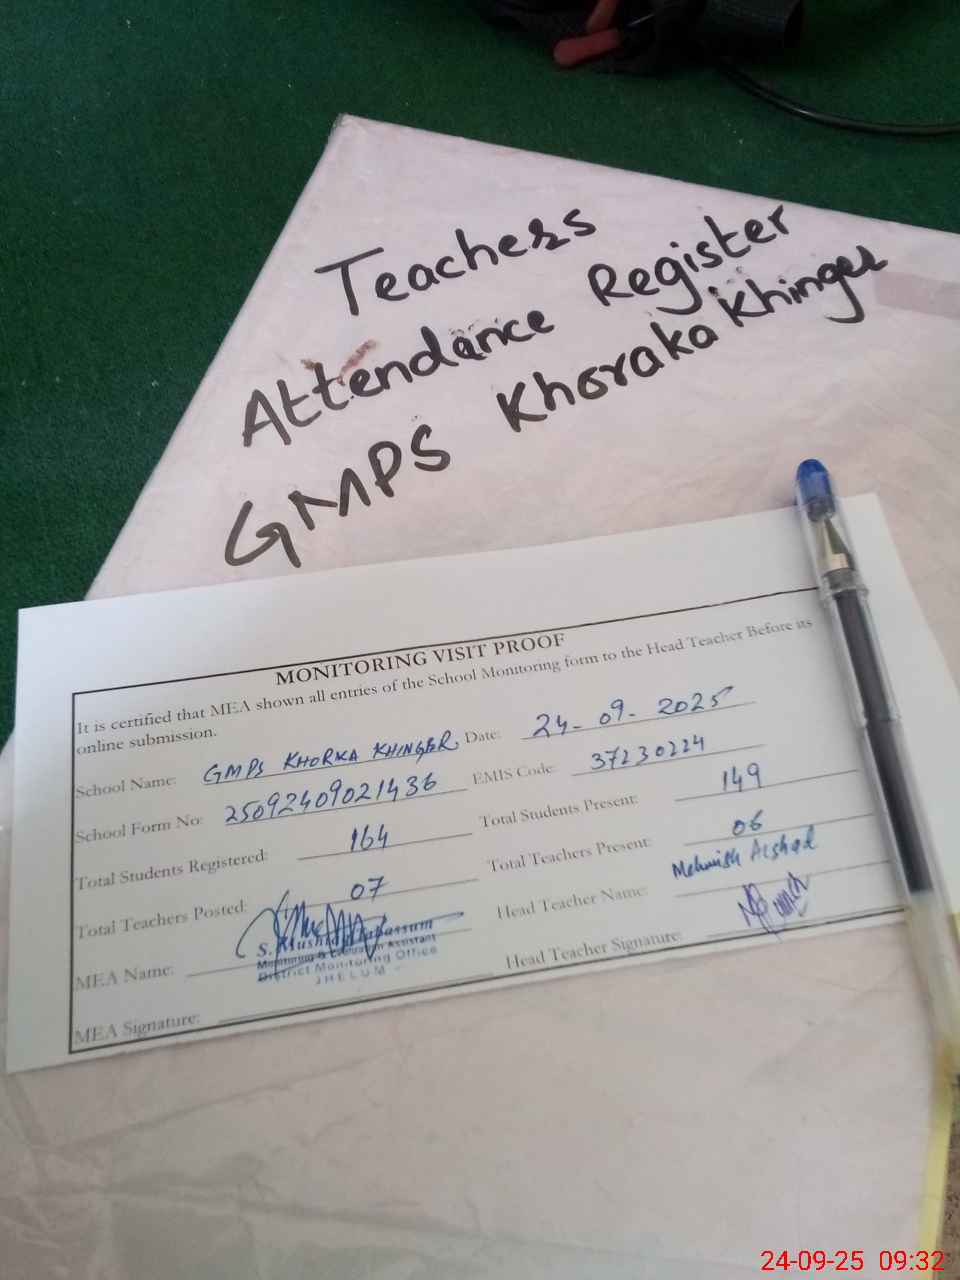 Teachers
Attendance Register
GMPS Khoraka Khinger
MONITORING VISIT PROOF
It is certified that MEA shown all entries of the School Monitoring form to the Head Teacher Before its
online submission.
School Name: GMPS KHORKA KHINGER Date: 24-09-2025
School Form No: 25092409021436 EMIS Code: 37230224
Total Students Registered: 164 Total Students Present: 149
Total Teachers Posted: 07 Total Teachers Present: 06
MEA Name: Head Teacher Name: Mehwish Arshad
MEA Signature: Head Teacher Signature:
Monitoring & Evaluation Assistant
District Monitoring Office
JHELUM
24-09-25 09:32